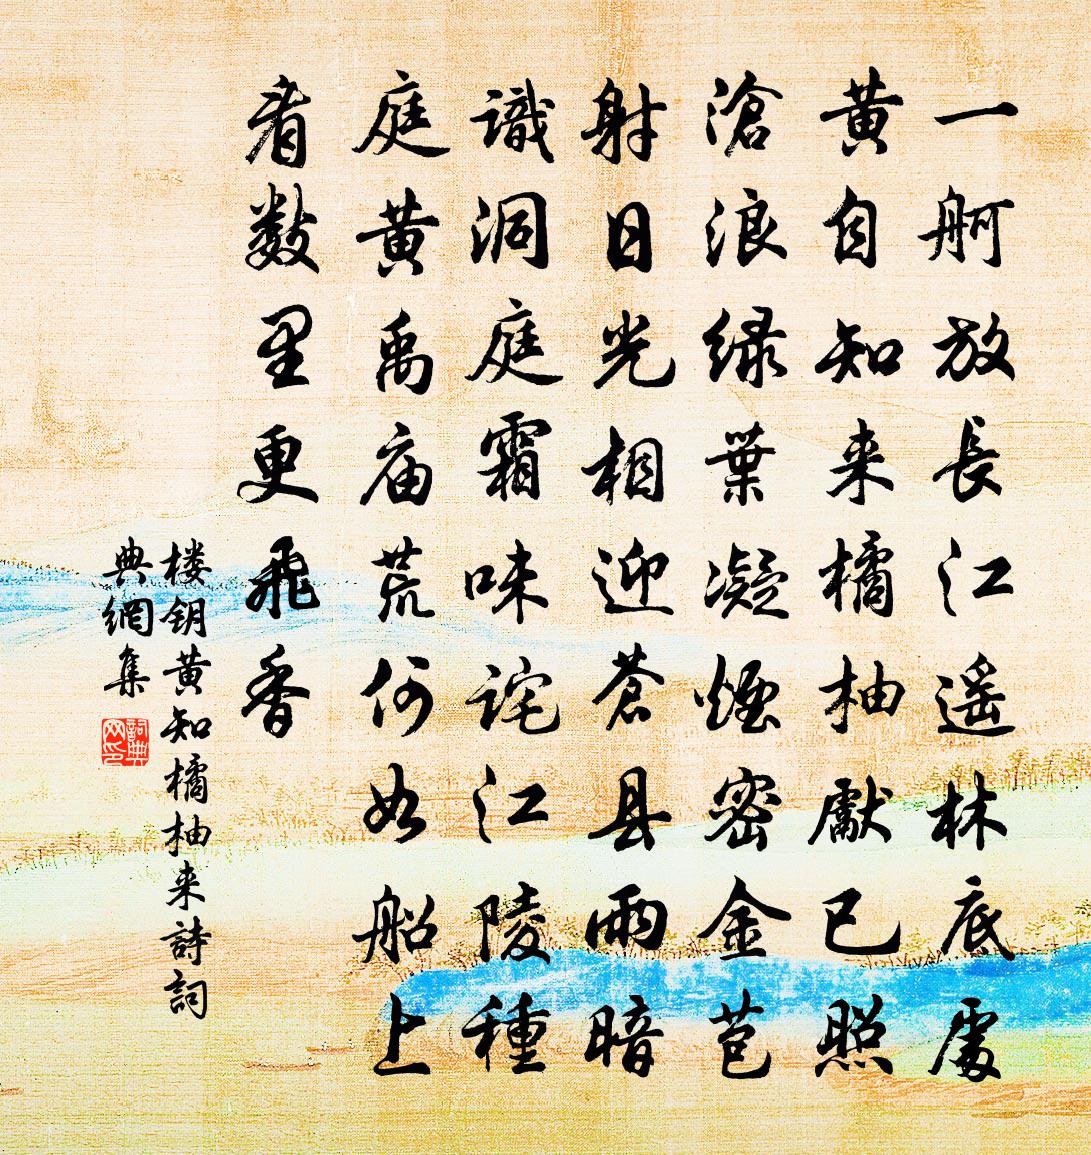 一舸放長江遥林底處
黄自知来橘柚獻已照
滄浪緑葉凝煙密金苞
射日光相迎蒼县雨暗
識洞庭霜味詫江陵種
庭黄禹庙荒何如船上
看数里更飛香
楼钥黄知橘柚来詩詞
典網集
詞典网印